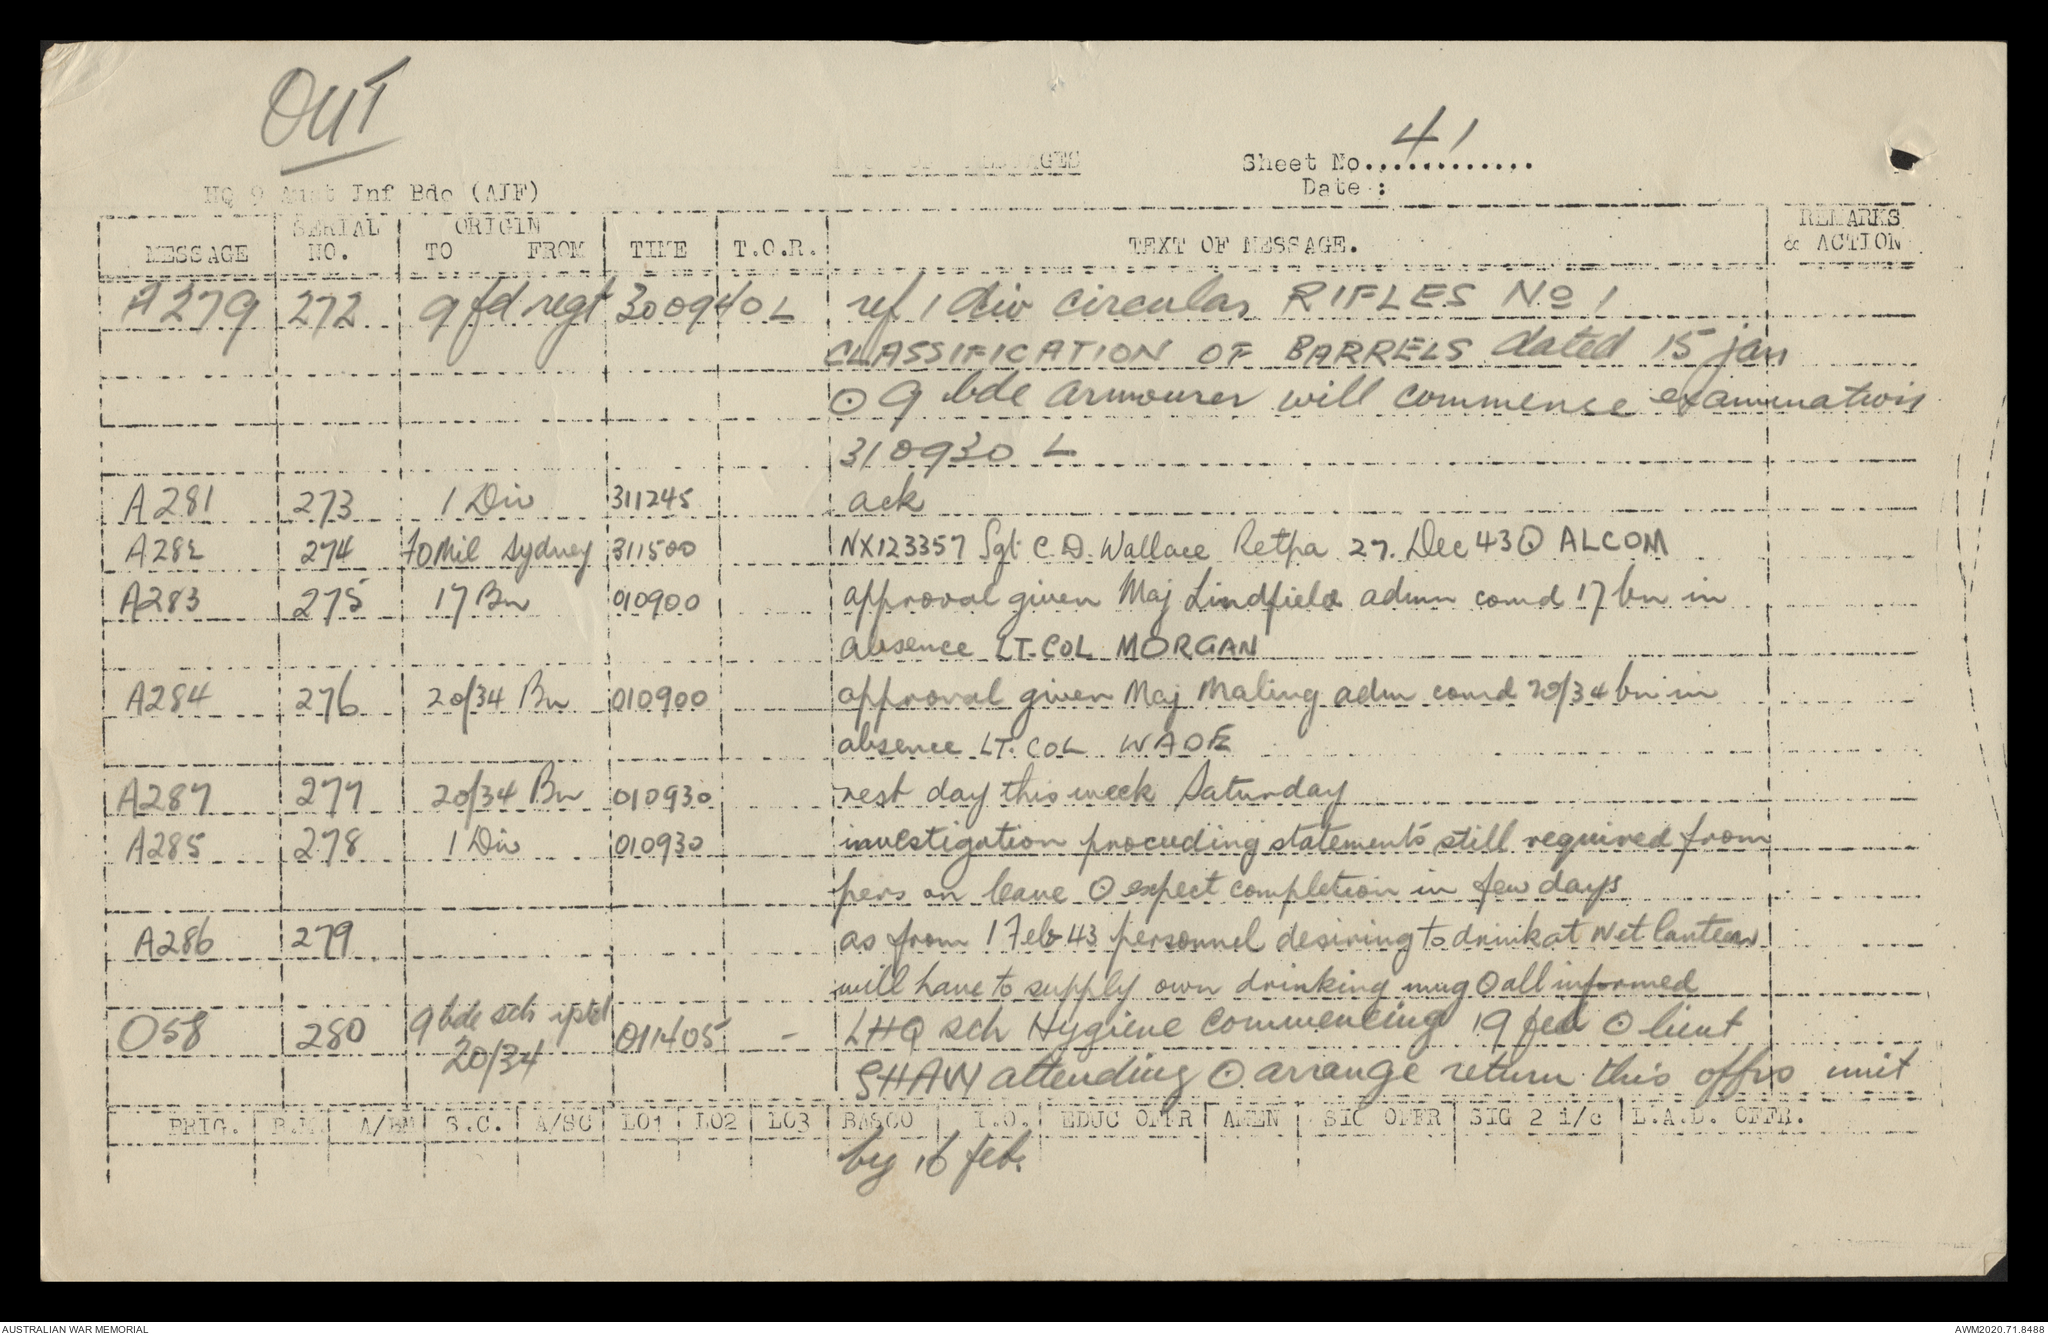 OUT
MESSAGES
Sheet No. 41
Date :
HQ 9 Aust Inf Bde (AIF)
MESSAGE SERIAL NO. ORIGIN TO FROM TIME T.O.R. TEXT OF MESSAGE. REMARKS & ACTION
A279 272 9 fd regt 300940L ref 1 div circular RIFLES No 1
CLASSIFICATION OF BARRELS dated 15 jan
⊙ 9 bde armourer will commence examination
310930 L
A281 273 1 Div 311245 ack
A282 274 Mil Sydney 311500 NX123357 Sgt C.D. Wallace Retpa 27. Dec 43 ⊙ ALCOM
A283 275 17 Bn 010900 approval given Maj Lindfield admn comd 17 bn in
absence LT-COL MORGAN
A284 276 20/34 Bn 010900 approval given Maj Maling adm comd 20/34 bn in
absence LT. COL WADE
A287 277 20/34 Bn 010930 rest day this week Saturday
A285 278 1 Div 010930 investigation proceeding statements still required from
pers on leave ⊙ expect completion in few days
A286 279 as from 1 Feb 43 personnel desiring to drink at wet canteen
will have to supply own drinking mug ⊙ all informed
O58 280 9 bde sch rptd 20/34 011405 - LHQ sch Hygiene commencing 19 feb ⊙ lieut
SHAW attending ⊙ arrange return this offrs unit
BRIG. B.M. A/BM S.C. A/SC LO1 LO2 LO3 BASCO I.O. EDUC OFFR AMEN SIG OFFR SIG 2 i/c L.A.D. OFFR.
by 16 feb.
AUSTRALIAN WAR MEMORIAL
AWM2020.71.8488